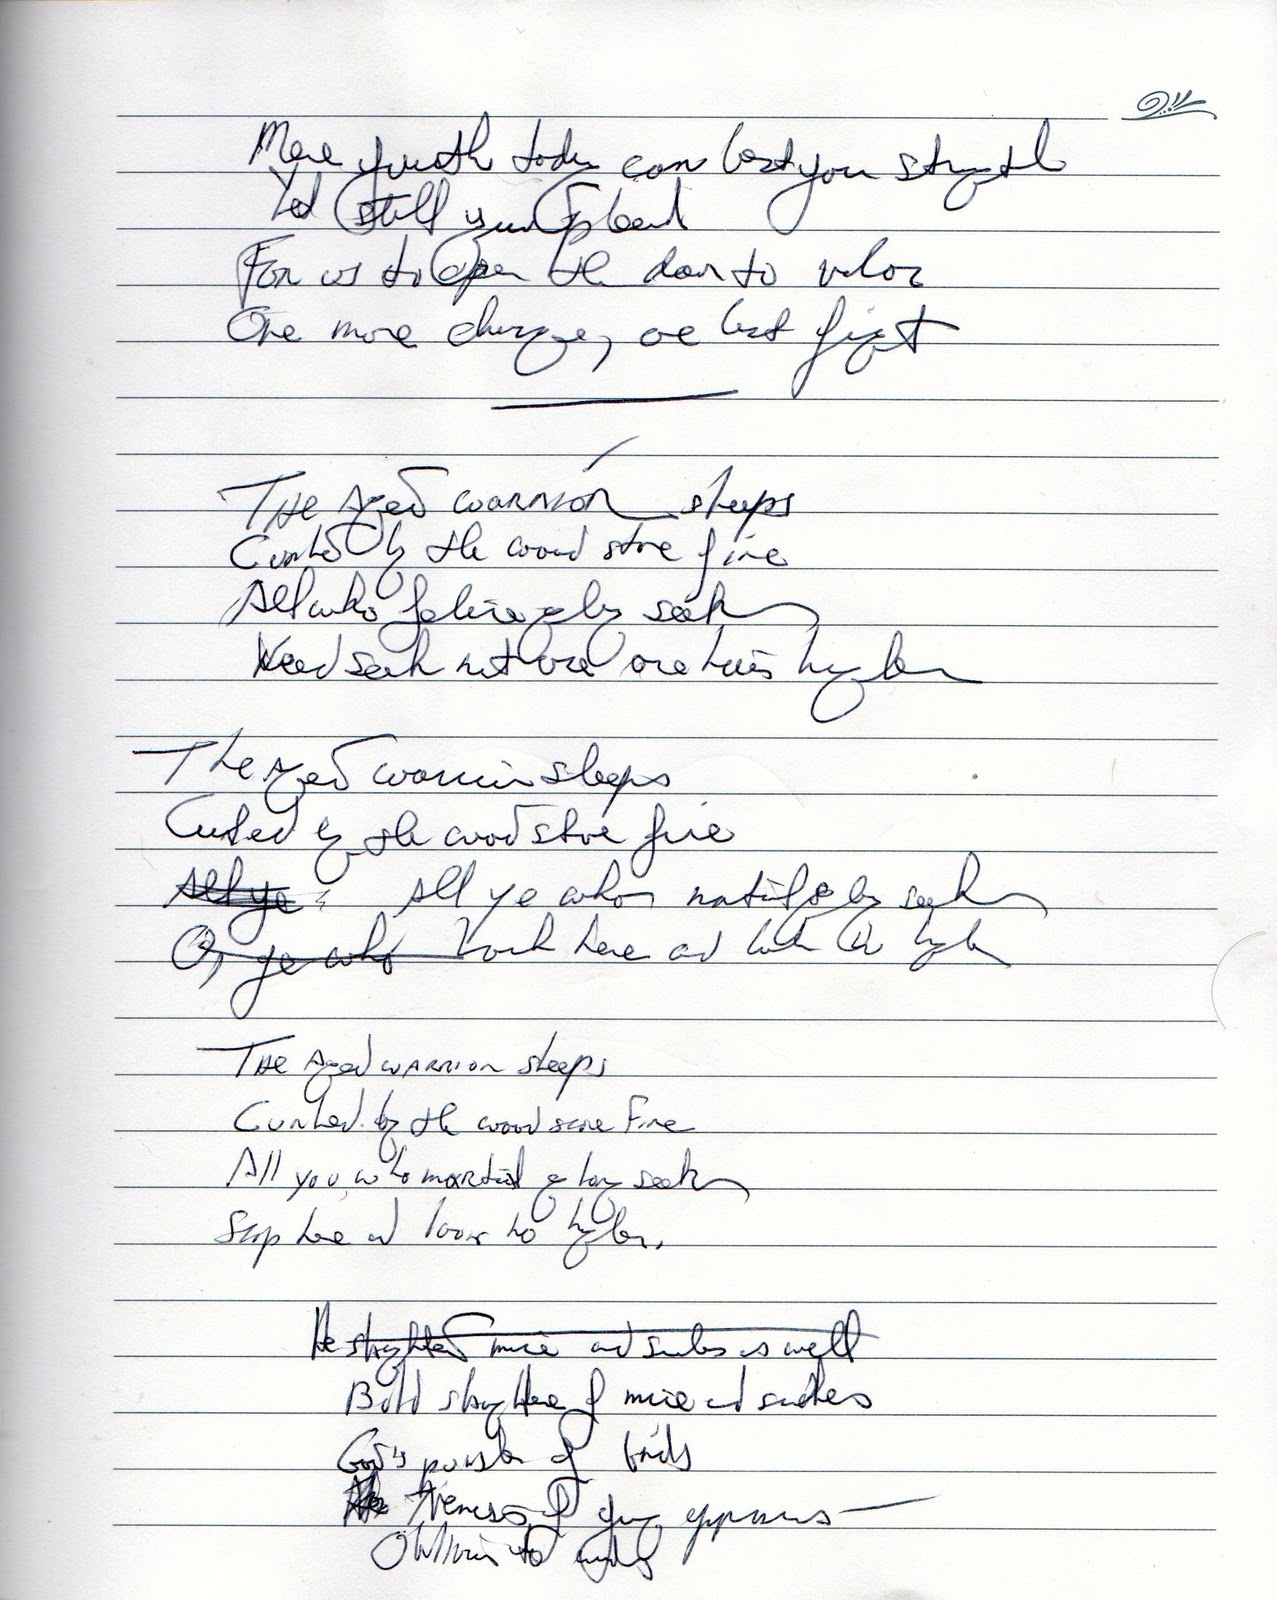 More youth today can best your strength
Yet still is
For us to open the door to valor
One more charge, one last fight
The Aged warrior sleeps
Curled by the wood stove fire
All who feline glory seek
Need seek not one one hair's higher
The Aged warrior sleeps
Curled by the wood stove fire
All ye All ye who glory seek
O, ye who look here and
The Aged warrior sleeps
Curled by the wood stove Fire
All you who martial glory seek
Stop here and look no higher.
He slaughtered mice and snakes as well
Bold slaughterer of mice and snakes
God's punisher of birds
Fierceness of